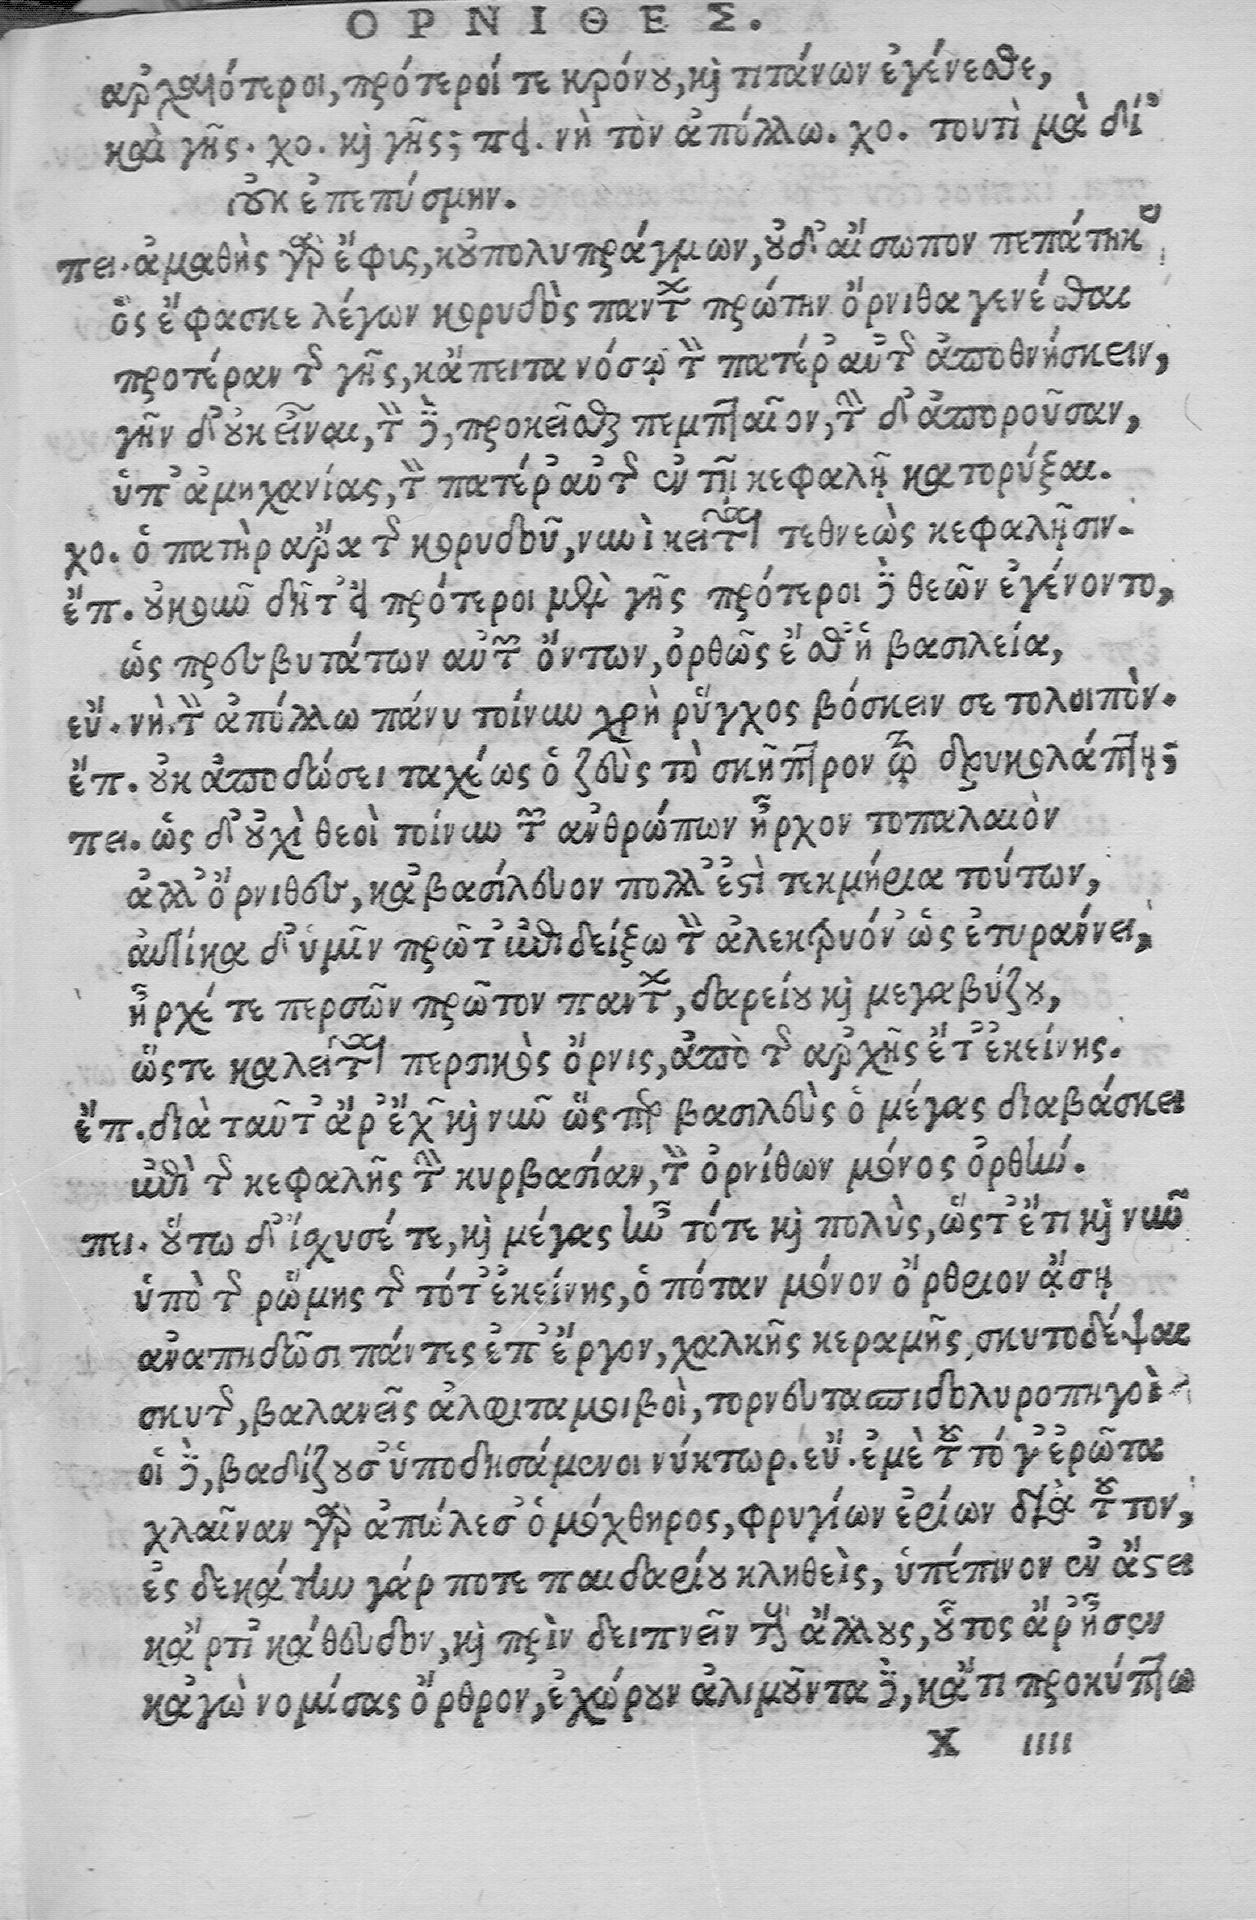 ΟΡΝΙΘΕΣ.
ἀρχαιότεροι, πρότεροί τε κρόνου, καὶ τιτάνων ἐγένεσθε,
καὶ γῆς. χο. καὶ γῆς; πει. νὴ τὸν ἀπόλλω. χο. τουτὶ μὰ δί'
οὐκ ἐπεπύσμην.
πει. ἀμαθὴς γὰρ ἔφυς, κοὐ πολυπράγμων, οὐδ' αἴσωπον πεπάτηκας
ὃς ἔφασκε λέγων κορυδὸς πάντων πρώτην ὄρνιθα γενέσθαι
προτέραν τῆς γῆς, κἄπειτα νόσῳ τὸν πατέρ' αὐτῆς ἀποθνήσκειν,
γῆν δ' οὐκ εἶναι, τὸν δὲ, προκεῖσθαι πεμπταῖον, τὴν δ' ἀποροῦσαν,
ὑπ' ἀμηχανίας, τὸν πατέρ' αὐτῆς ἐν τῇ κεφαλῇ κατορύξαι.
χο. ὁ πατὴρ ἄρα τῆς κορυδοῦ, νυνὶ κεῖται τεθνεὼς κεφαλῇσιν.
ἔπ. οὐκοῦν δῆτ' εἰ πρότεροι μὲν γῆς πρότεροι δὲ θεῶν ἐγένοντο,
ὡς πρεσβυτάτων αὐτῶν ὄντων, ὀρθῶς ἔσθ' ἡ βασιλεία,
εὔ. νὴ τὸν ἀπόλλω πάνυ τοίνυν χρὴ ῥύγχος βόσκειν σε τολοιπὸν.
ἔπ. οὐκ ἀποδώσει ταχέως ὁ ζεὺς τὸ σκῆπτρον τῷ δρυκολάπτῃ;
πει. ὡς δ' οὐχὶ θεοὶ τοίνυν τῶν ἀνθρώπων ἦρχον τοπαλαιὸν
ἀλλ' ὄρνιθες, κἀβασίλευον πολλ' ἐστὶ τεκμήρια τούτων,
αὐτίκα δ' ὑμῖν πρῶτ' ἐπιδείξω τὸν ἀλεκτρυόν' ὡς ἐτυράννει,
ἦρχέ τε περσῶν πρῶτον πάντων, δαρείου καὶ μεγαβύζου,
ὥστε καλεῖται περσικὸς ὄρνις, ἀπὸ τῆς ἀρχῆς ἔτ' ἐκείνης.
ἔπ. διὰ ταῦτ' ἄρ' ἔχων καὶ νῦν ὥσπερ βασιλεὺς ὁ μέγας διαβάσκει
ἐπὶ τῆς κεφαλῆς τὴν κυρβασίαν, τῶν ὀρνίθων μόνος ὀρθὴν.
πει. οὕτω δ' ἴσχυσέ τε, καὶ μέγας ἦν τότε καὶ πολὺς, ὥστ' ἔτι καὶ νῦν
ὑπὸ τῆς ῥώμης τῆς τότ' ἐκείνης, ὁ πόταν μόνον ὄρθριον ᾄσῃ
ἀναπηδῶσι πάντες ἐπ' ἔργον, χαλκῆς κεραμῆς, σκυτοδέψαι
σκυτῆς, βαλανεῖς ἀλφιταμοιβοὶ, τορνευτασπιδολυροπηγοὶ
οἱ δὲ, βαδίζουσ' ὑποδησάμενοι νύκτωρ. εὔ. ἐμὲ τοῦτό γ' ἐρῶτα
χλαῖναν γὰρ ἀπώλεσ' ὁ μόχθηρος, φρυγίων ἐρίων διὰ τοῦτον,
ἐς δεκάτην γάρ ποτε παιδαρίου κληθεὶς, ὑπέπινον ἐν ἄστει
κἄρτι κάθευδον, καὶ πρὶν δειπνεῖν τοὺς ἄλλους, οὗτος ἄρ' ᾖσεν
κἀγὼ νομίσας ὄρθρον, ἐχώρουν ἁλιμοῦντα δὲ, κἄτι προκύπτω
X IIII